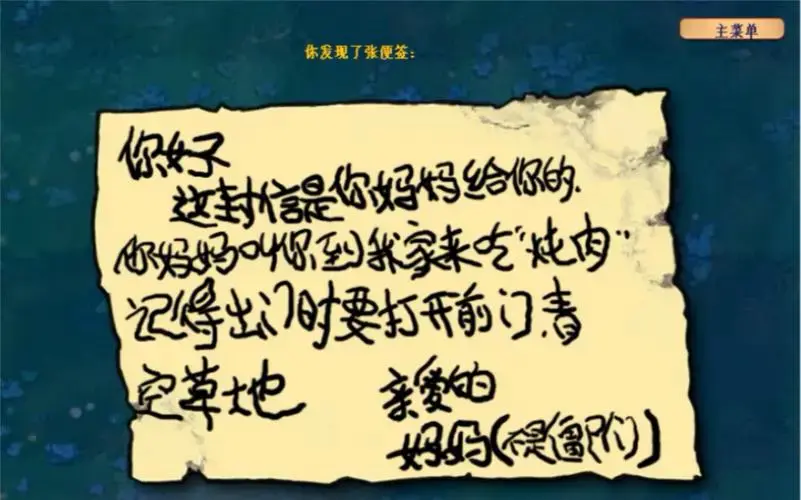 主菜单
你发现了张便签：
你好
这封信是你妈妈给你的.
你妈妈叫你到我家来吃“炖肉”
记得出门时要打开前门.青
空草地
亲爱的
妈妈(不是僵尸们)